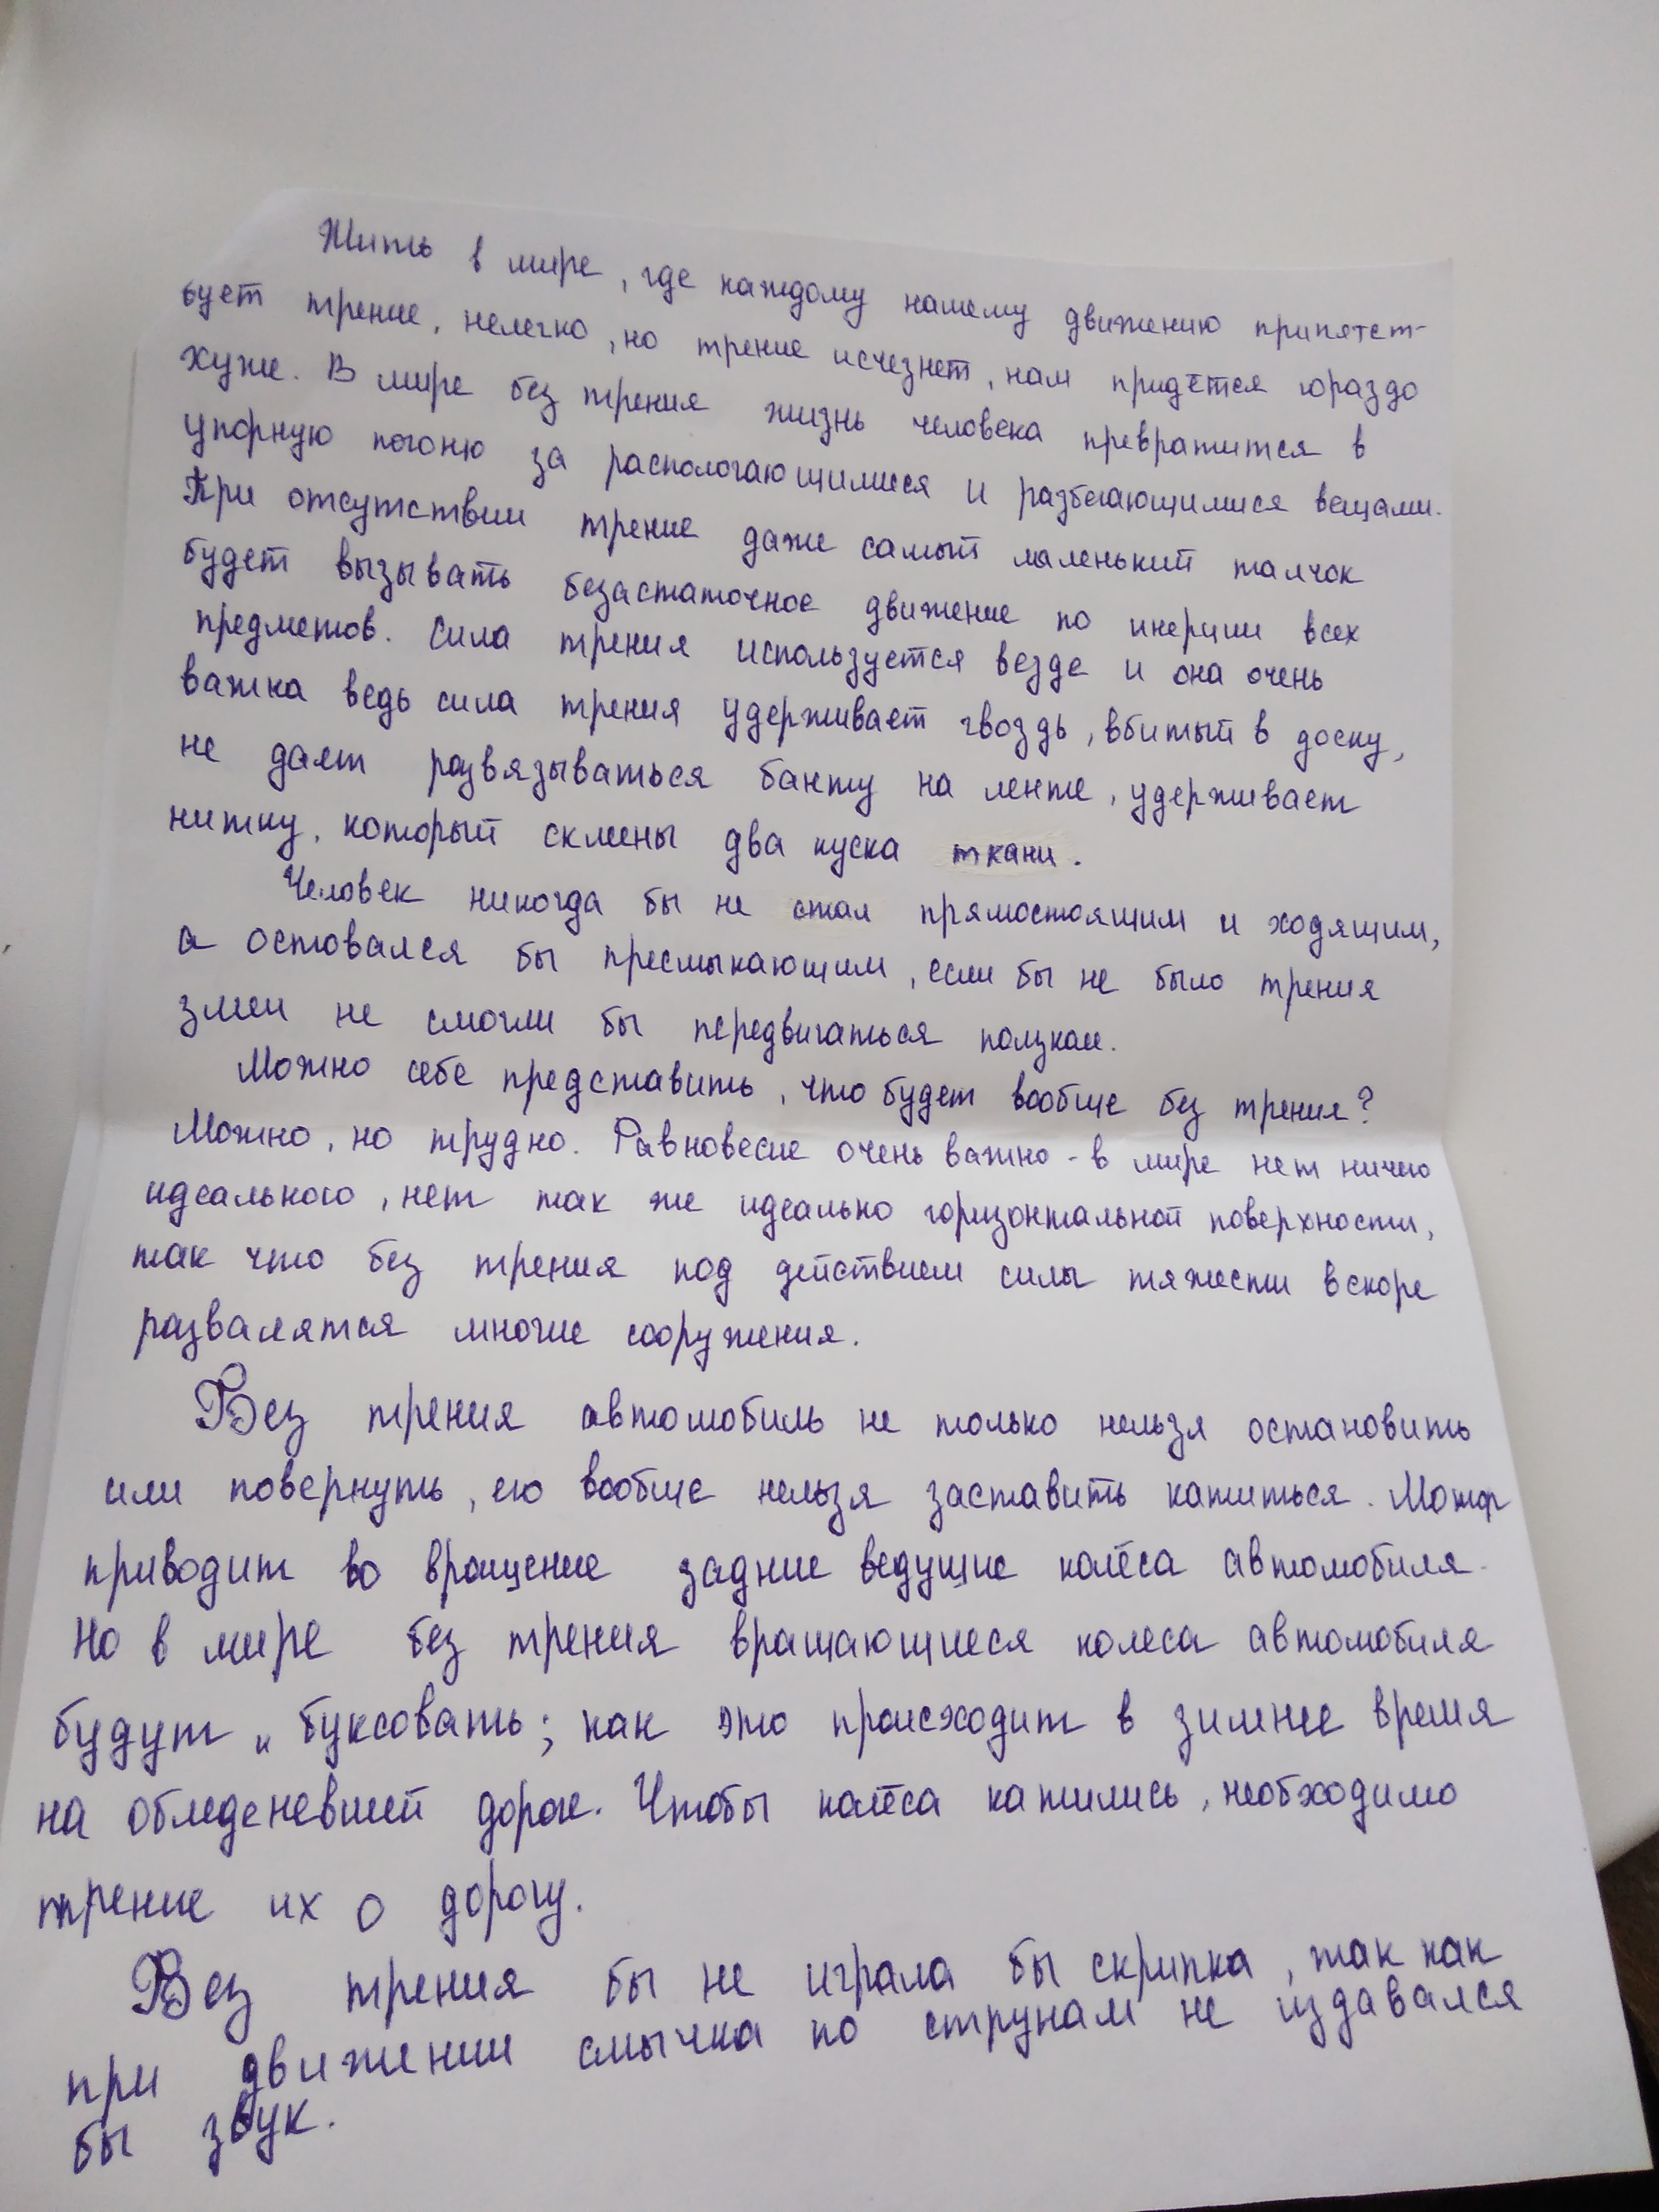 Жить в мире, где каждому нашему движению припятст-
вует трение, нелегко, но трение исчезнет, нам придётся гораздо
хуже. В мире без трения жизнь человека превратится в
упорную погоню за распологающимися и разбегающимися вещами.
При отсутствии трение даже самый маленький талчок
будет вызывать безастаточное движение по инерции всех
предметов. Сила трения используется везде и она очень
важна ведь сила трения удерживает гвоздь, вбитый в доску,
не дает развязываться банту на ленте, удерживает
нитку, который склины два куска ткани.
Человек никогда бы не стал прямостоящим и ходящим,
а оставался бы пресмыкающим, если бы не было трения
змеи не смогли бы передвигаться ползком.
Можно себе представить, что будет вообще без трения?
Можно, но трудно. Равновесие очень важно - в мире нет ничего
идеального, нет так же идеально горизонтальной поверхности,
так что без трения под действием силы тяжести вскоре
развалятся многие сооружения.
Без трения автомобиль не только нельзя остановить
или повернуть, его вообще нельзя заставить катиться. Мотор
приводит во вращение задние ведущие колёса автомобиля.
Но в мире без трения вращающиеся колеса автомобиля
будут „ буксовать; как это происходит в зимнее время
на обледеневшей дороге. Чтобы колёса катились, необходимо
трение их о дорогу.
Без трения бы не играла бы скрипка, так как
при движении смычка по струнам не издавался
бы звук.